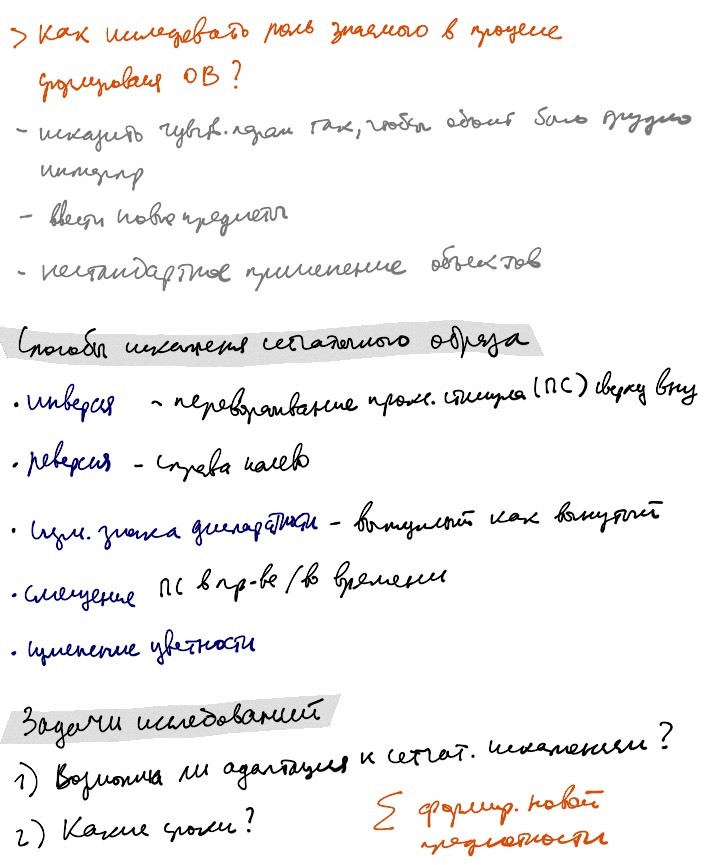 > Как исследовать роль знаемого в процессе
формирования ОВ?
- исказить чувств. парам так, чтобы объект было трудно
интерпр
- ввести новые предметы
- нестандартное применение объектов
Способы искажения сетчаточного образа
• инверсия - переворачивание прокс. стимула (ПС) сверху вниз
• реверсия - справа налево
• изм. знака диспаратности - выпуклый как вогнутый
• смещение ПС в пр-ве / во времени
• изменение цветности
Задачи исследований
1) Возможна ли адаптация к сетчат. искажениям?
2) Какие сроки?
Σ формир. новой
предметности